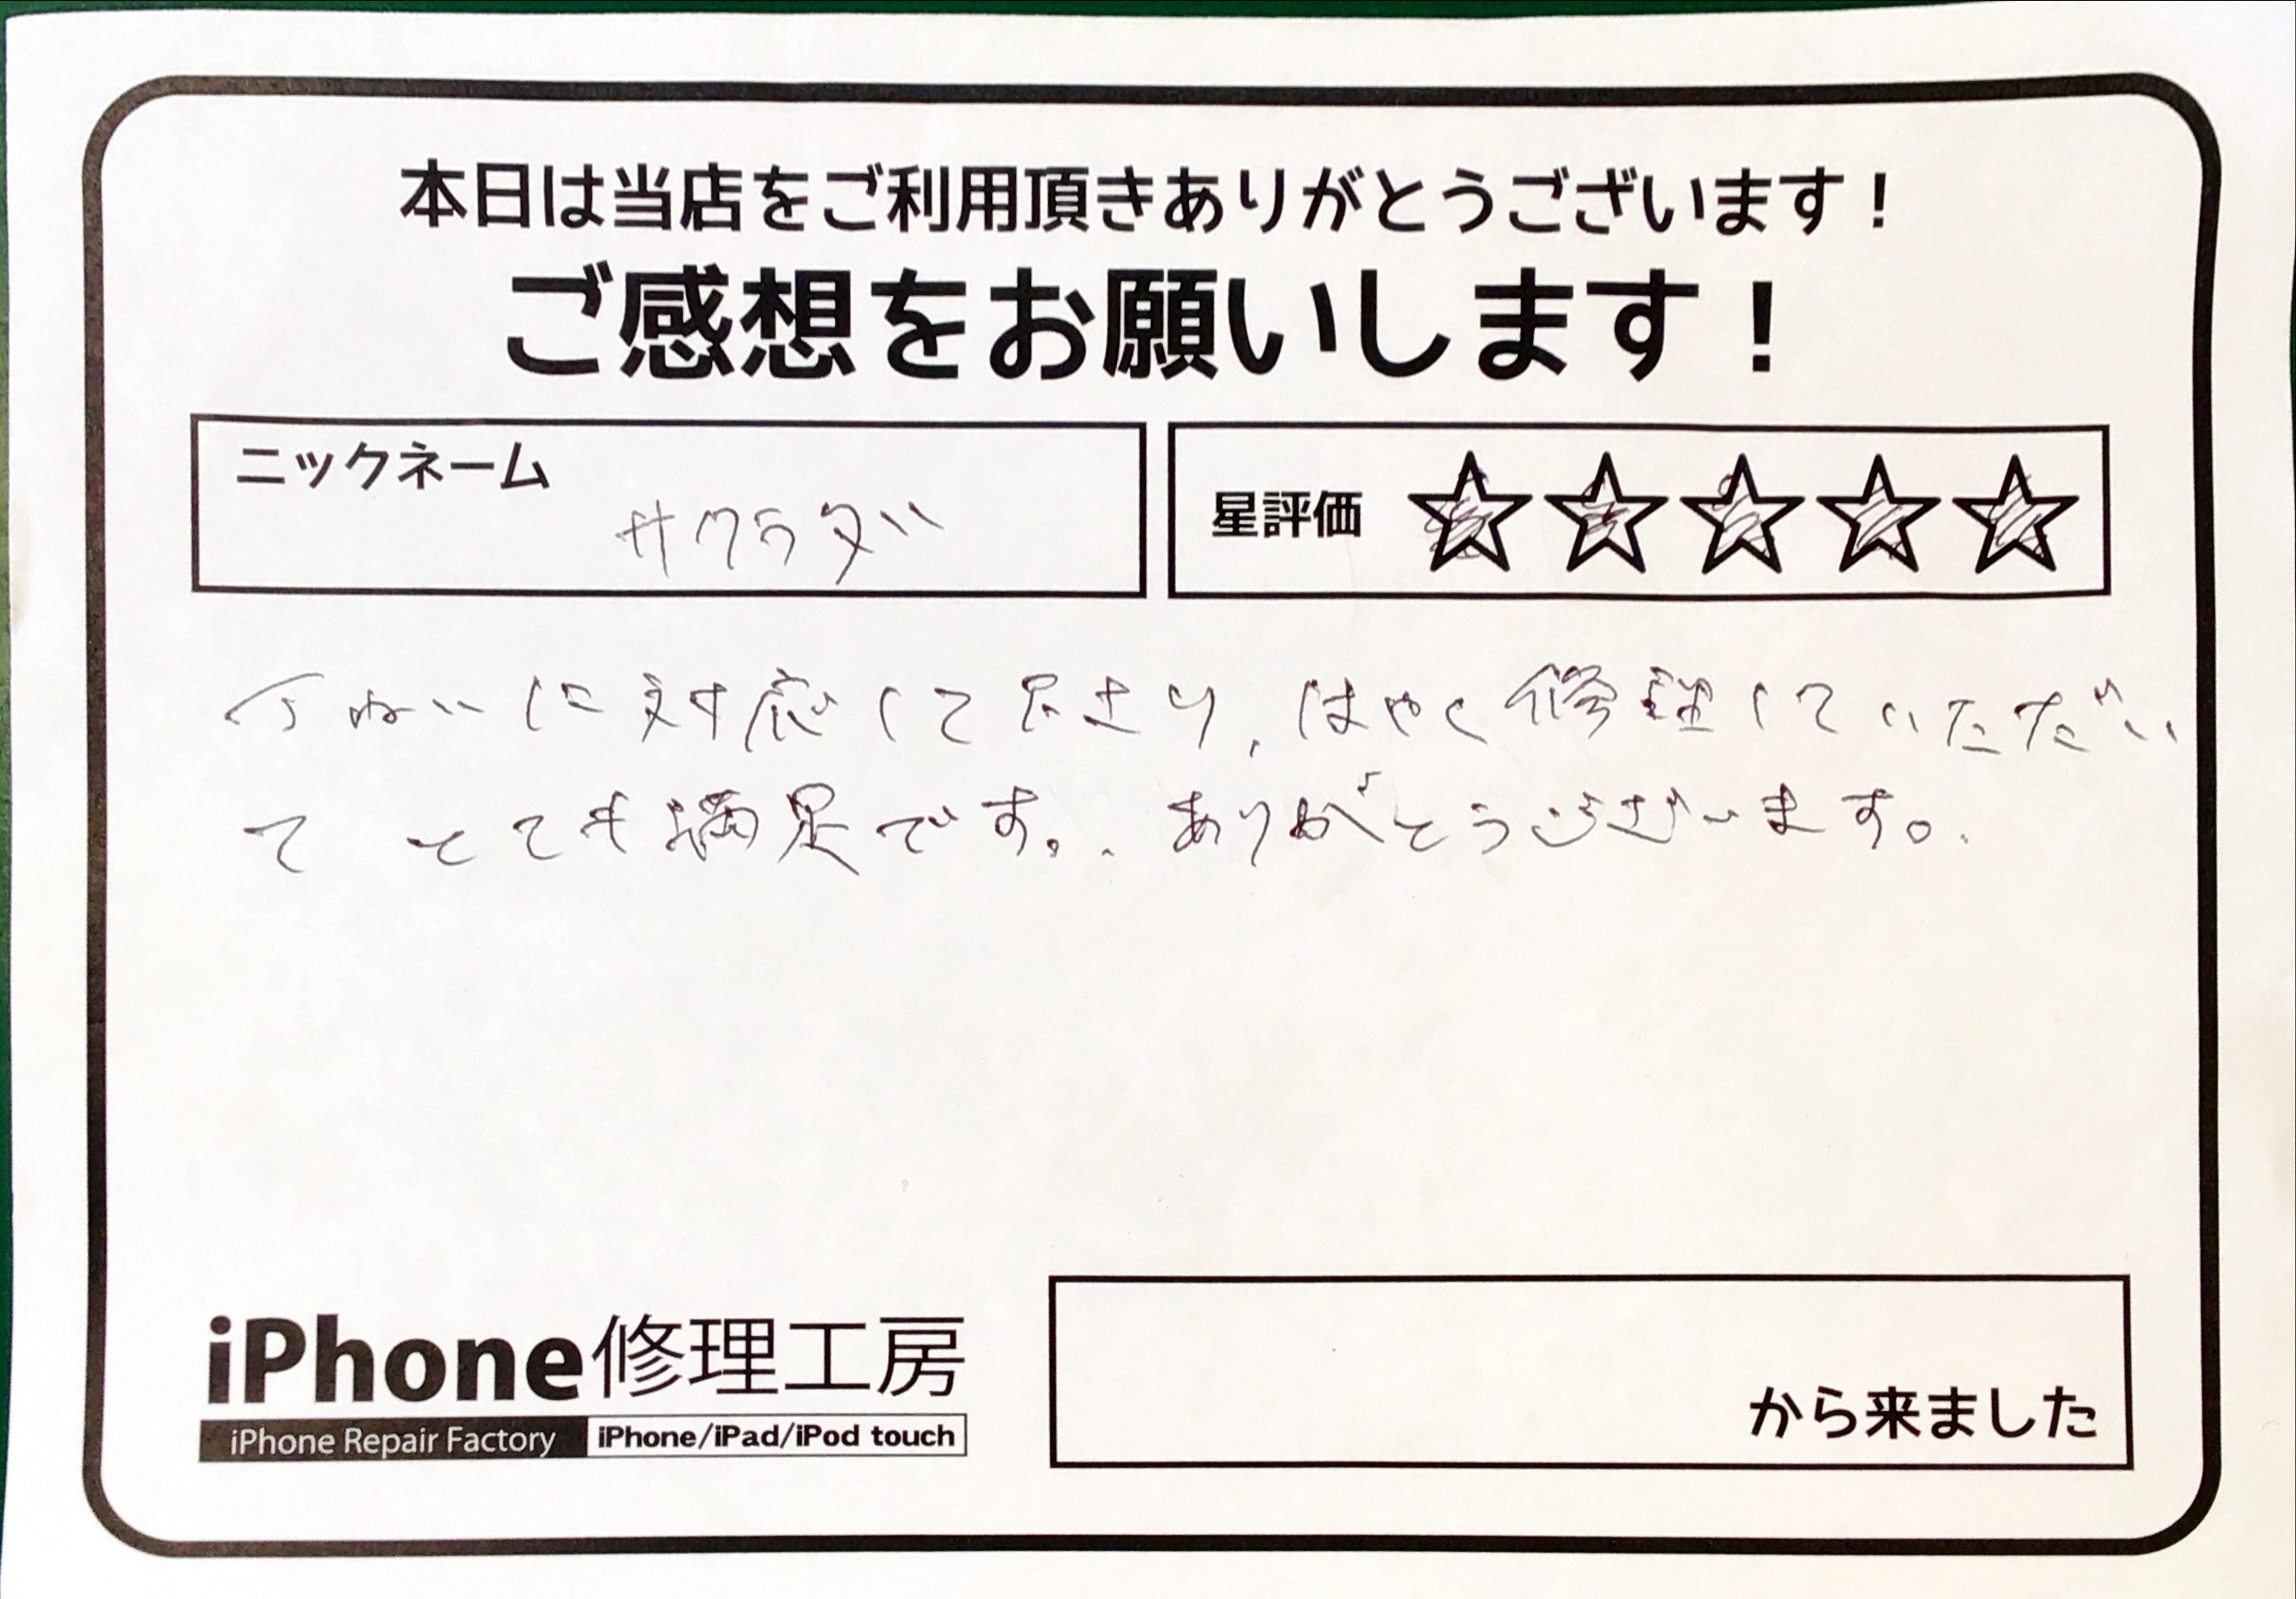 本日は当店をご利用頂きありがとうございます！
ご感想をお願いします！
ニックネーム
サクラダ
星評価 ★★★★★
丁ねいに対応して下さり、はやく修理していただい
て とても満足です。ありがとうございます。
iPhone修理工房
iPhone Repair Factory iPhone/iPad/iPod touch
から来ました